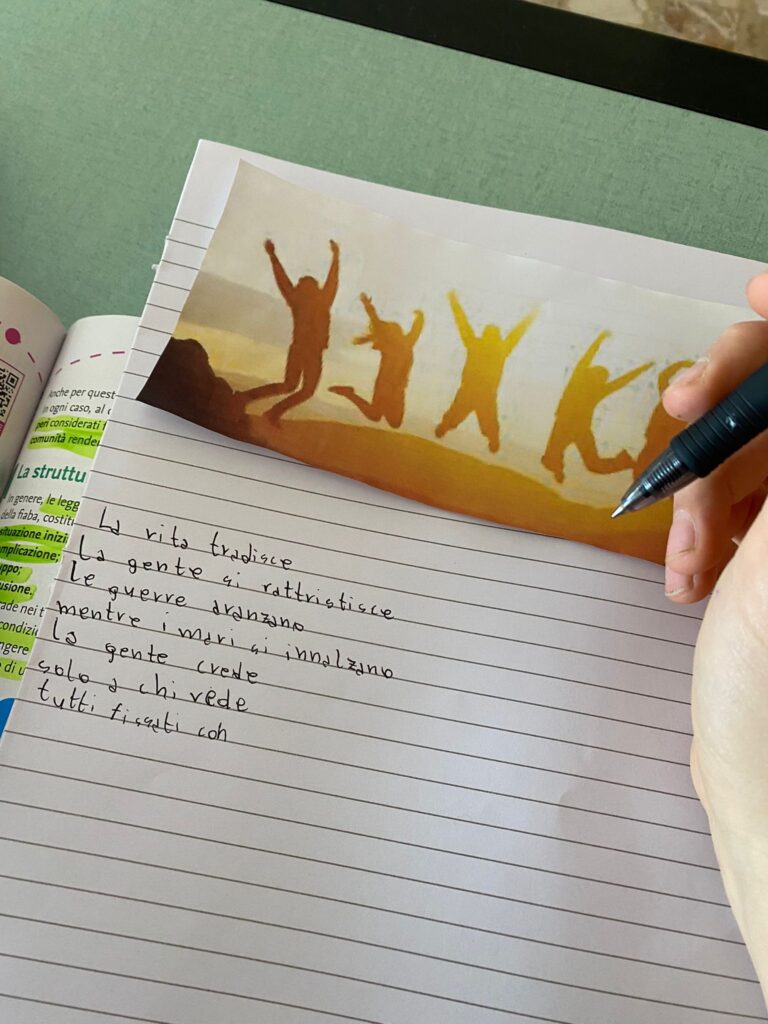 Anche per quest
in ogni caso, al
peri considerati f
comunità render
La struttu
In genere, le legg
della fiaba, costit
situazione inizi
mplicazione;
uppo;
usione.
ade nei t
condizi
ngere
di u
La vita tradisce
La gente si rattristisce
le guerre avanzano
mentre i mari si innalzano
la gente crede
solo a chi vede
tutti fissati con